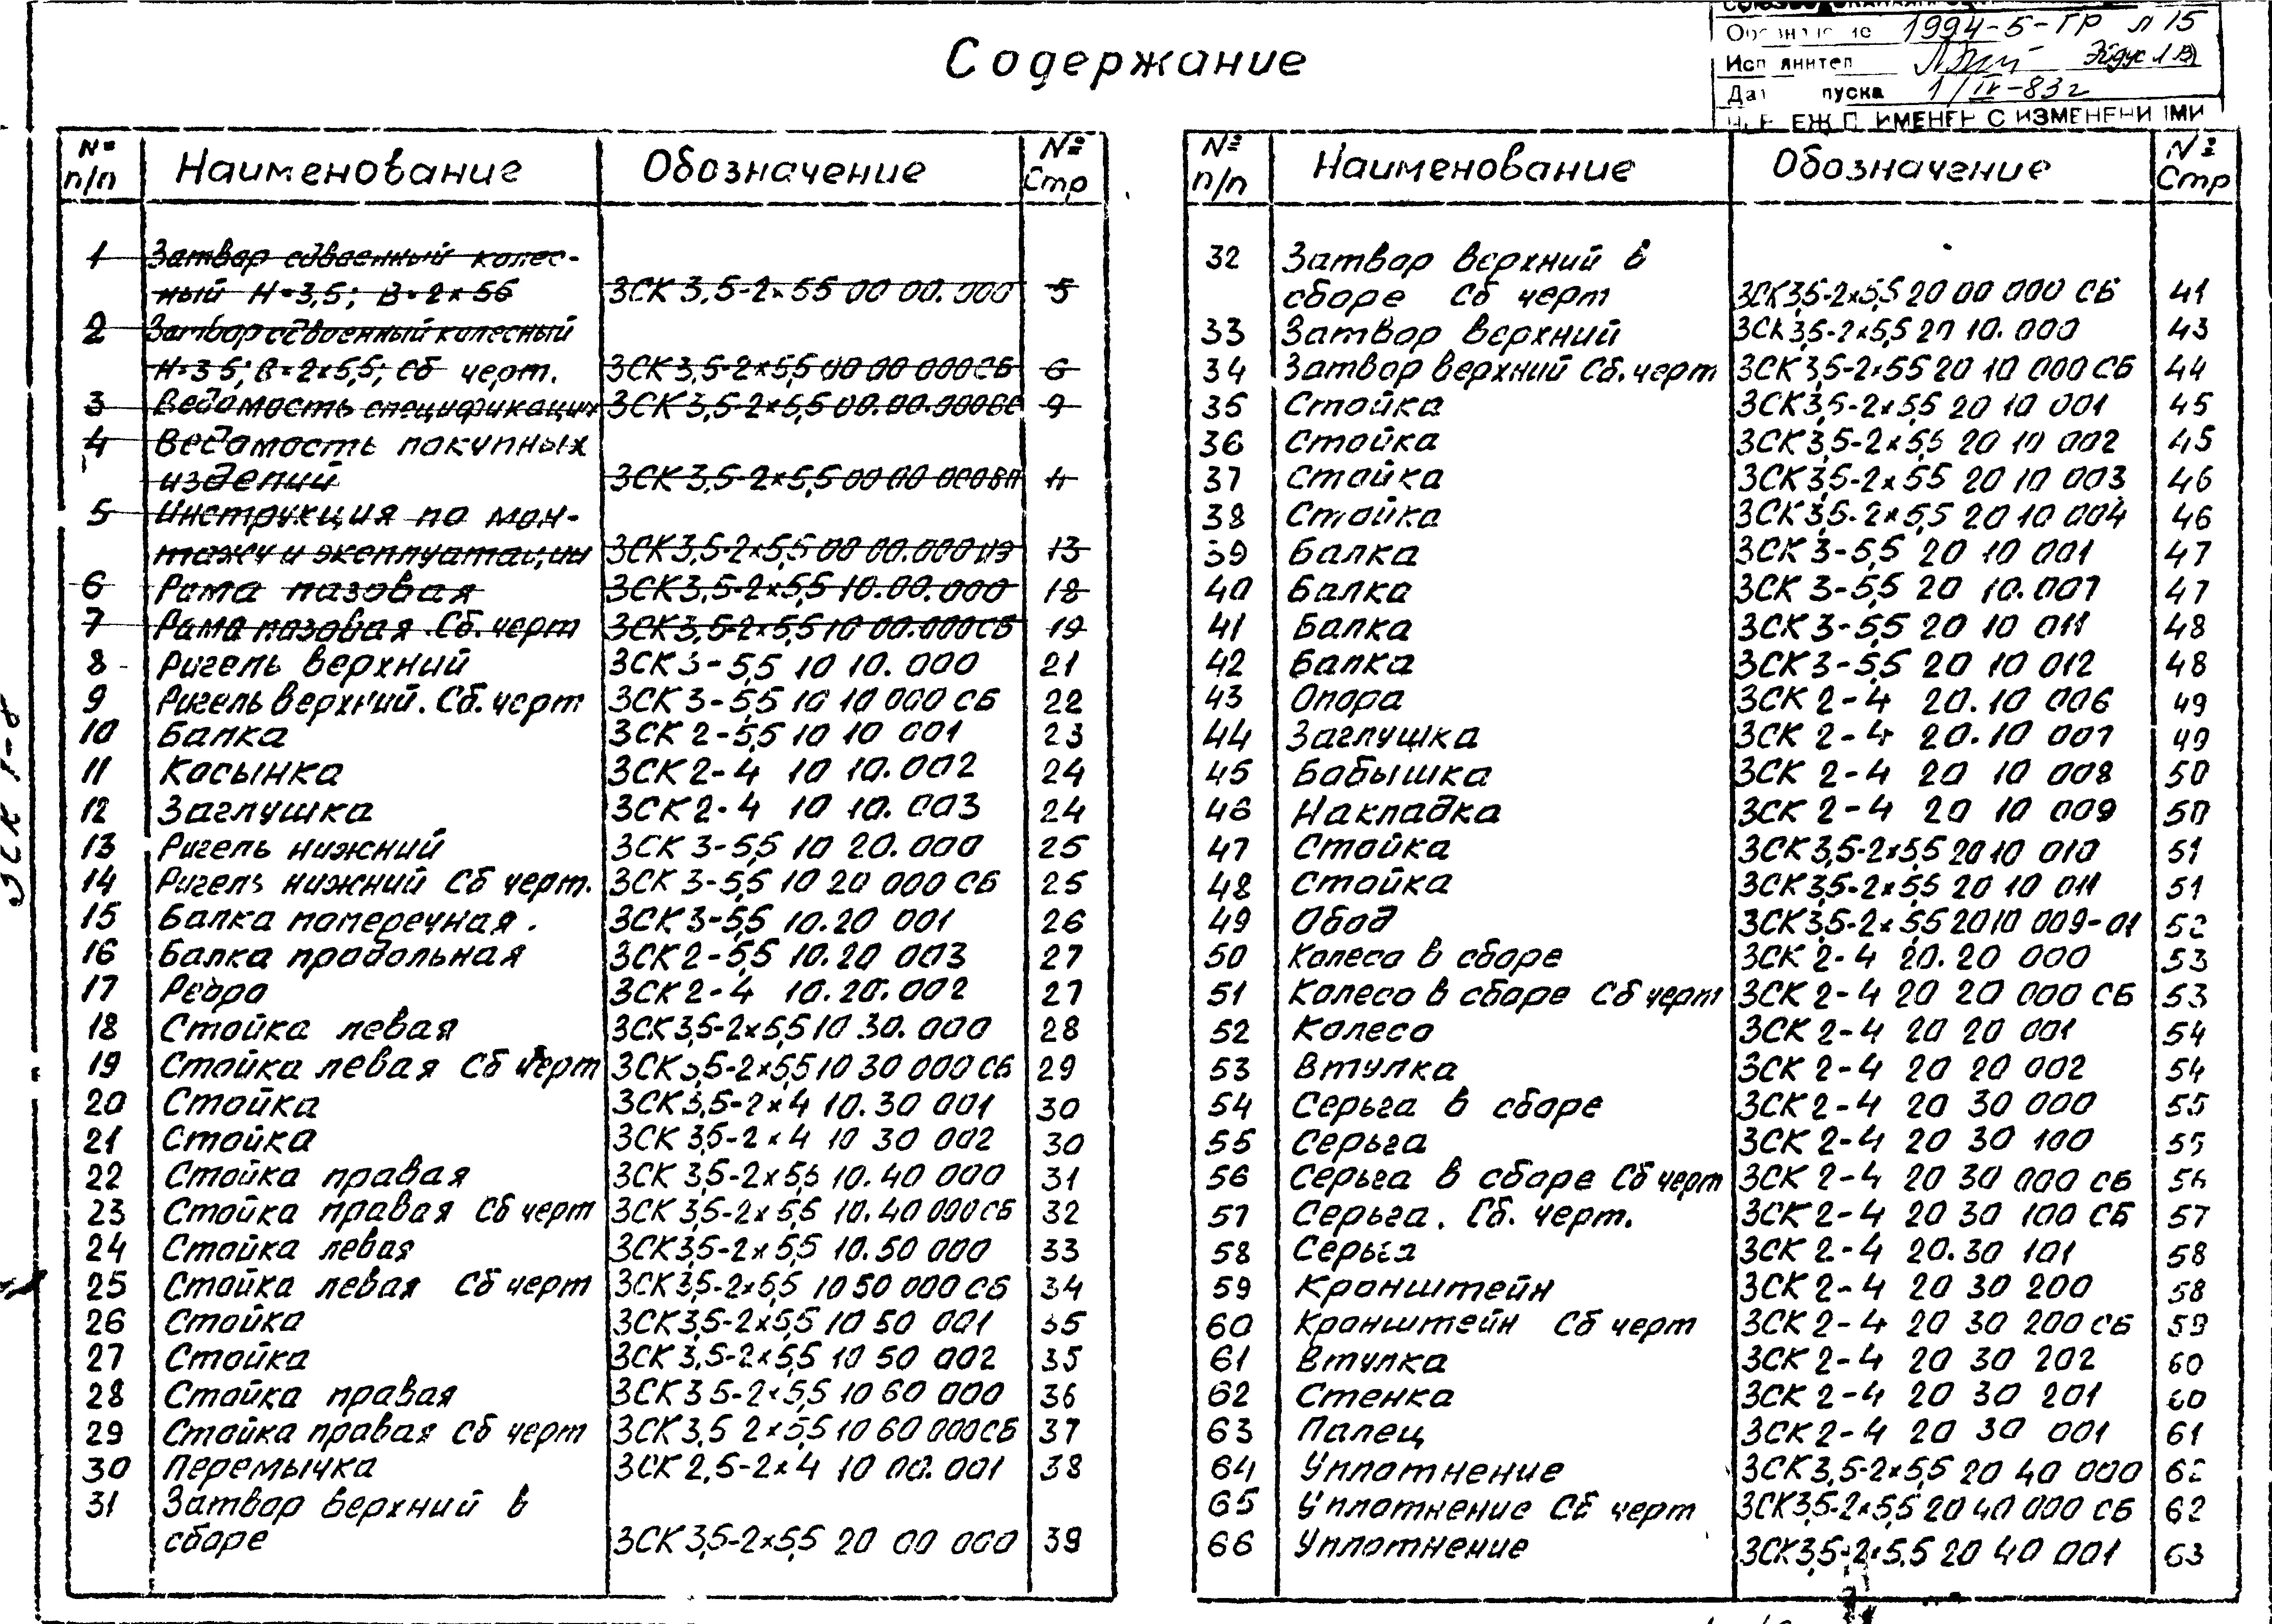 Содержание
1994-5-ГР л 15
1/IV-83г
С ИЗМЕНЕНИ ЯМИ
№ п/п Наименование Обозначение № Стр
1 Затвор сдвоенный колес-
ный Н=3,5; В=2×55 ЗСК 3,5-2×55 00 00.000 5
2 Затвор сдвоенный колесный
Н=35; В=2×5,5; Сб черт. ЗСК 3,5-2×5,5 00 00 000СБ 6
3 Ведомость спецификации ЗСК 3,5-2×5,5 00.00.000ВС 9
4 Ведомость покупных
изделий ЗСК 3,5-2×5,5 00 00 000ВП 11
5 Инструкция по мон-
тажу и эксплуатации ЗСК 3,5-2×5,5 00 00.000 ИЭ 13
6 Рама пазовая ЗСК 3,5-2×5,5 10.00.000 18
7 Рама пазовая. Сб. черт ЗСК 3,5-2×5,5 10 00.000СБ 19
8 Ригель верхний ЗСК 3-5,5 10 10.000 21
9 Ригель верхний. Сб. черт ЗСК 3-5,5 10 10 000 СБ 22
10 Балка ЗСК 2-5,5 10 10 001 23
11 Косынка ЗСК 2-4 10 10.002 24
12 Заглушка ЗСК 2-4 10 10.003 24
13 Ригель нижний ЗСК 3-5,5 10 20.000 25
14 Ригель нижний Сб черт. ЗСК 3-5,5 10 20 000 СБ 25
15 Балка поперечная. ЗСК 3-5,5 10.20 001 26
16 Балка продольная ЗСК 2-5,5 10.20 003 27
17 Ребро ЗСК 2-4 10.20.002 27
18 Стойка левая ЗСК 3,5-2×5,5 10 30.000 28
19 Стойка левая Сб черт ЗСК 3,5-2×5,5 10 30 000 СБ 29
20 Стойка ЗСК 3,5-2×4 10.30 001 30
21 Стойка ЗСК 3,5-2×4 10 30 002 30
22 Стойка правая ЗСК 3,5-2×5,5 10.40 000 31
23 Стойка правая Сб черт ЗСК 3,5-2×5,5 10.40 000 СБ 32
24 Стойка левая ЗСК 3,5-2×5,5 10.50 000 33
25 Стойка левая Сб черт ЗСК 3,5-2×5,5 10 50 000 СБ 34
26 Стойка ЗСК 3,5-2×5,5 10 50 001 35
27 Стойка ЗСК 3,5-2×5,5 10 50 002 35
28 Стойка правая ЗСК 3 5-2×5,5 10 60 000 36
29 Стойка правая Сб черт ЗСК 3,5 2×5,5 10 60 000СБ 37
30 Перемычка ЗСК 2,5-2×4 10 00.001 38
31 Затвор верхний в
сборе ЗСК 3,5-2×5,5 20 00 000 39
№ п/п Наименование Обозначение № Стр
32 Затвор верхний в
сборе Сб черт ЗСК 3,5-2×5,5 20 00 000 СБ 41
33 Затвор верхний ЗСК 3,5-2×5,5 20 10.000 43
34 Затвор верхний Сб. черт ЗСК 3,5-2×55 20 10 000 СБ 44
35 Стойка ЗСК 3,5-2×5,5 20 10 001 45
36 Стойка ЗСК 3,5-2×5,5 20 10 002 45
37 Стойка ЗСК 3,5-2×55 20 10 003 46
38 Стойка ЗСК 3,5-2×5,5 20 10 004 46
39 Балка ЗСК 3-5,5 20 10 001 47
40 Балка ЗСК 3-5,5 20 10.007 47
41 Балка ЗСК 3-5,5 20 10 011 48
42 Балка ЗСК 3-5,5 20 10 012 48
43 Опора ЗСК 2-4 20.10 006 49
44 Заглушка ЗСК 2-4 20.10 007 49
45 Бобышка ЗСК 2-4 20 10 008 50
46 Накладка ЗСК 2-4 20 10 009 50
47 Стойка ЗСК 3,5-2×5,5 20 10 010 51
48 Стойка ЗСК 3,5-2×5,5 20 10 011 51
49 Обод ЗСК 3,5-2×5,5 20 10 009-01 52
50 Колесо в сборе ЗСК 2-4 20.20 000 53
51 Колесо в сборе Сб черт ЗСК 2-4 20 20 000 СБ 53
52 Колесо ЗСК 2-4 20 20 001 54
53 Втулка ЗСК 2-4 20 20 002 54
54 Серьга в сборе ЗСК 2-4 20 30 000 55
55 Серьга ЗСК 2-4 20 30 100 55
56 Серьга в сборе Сб черт ЗСК 2-4 20 30 000 СБ 56
57 Серьга. Сб. черт. ЗСК 2-4 20 30 100 СБ 57
58 Серьга ЗСК 2-4 20.30 101 58
59 Кронштейн ЗСК 2-4 20 30 200 58
60 Кронштейн Сб черт ЗСК 2-4 20 30 200 СБ 59
61 Втулка ЗСК 2-4 20 30 202 60
62 Стенка ЗСК 2-4 20 30 201 60
63 Палец ЗСК 2-4 20 30 001 61
64 Уплотнение ЗСК 3,5-2×5,5 20 40 000 62
65 Уплотнение Сб черт ЗСК 3,5-2×5,5 20 40 000 СБ 62
66 Уплотнение ЗСК 3,5-2×5,5 20 40 001 63